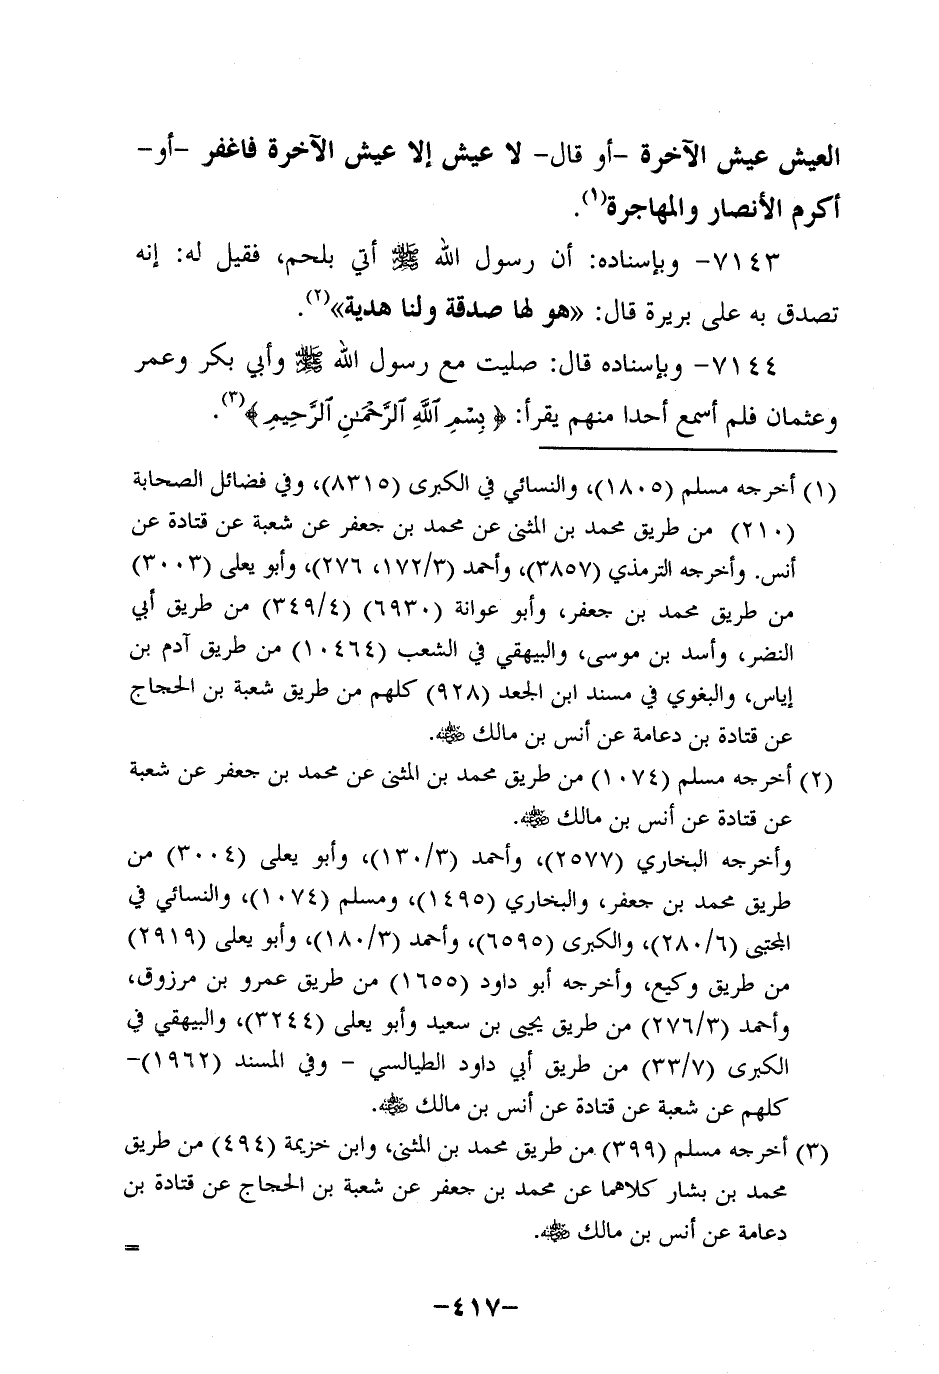 العيش عيش الآخرة -أو قال- لا عيش إلا عيش الآخرة فاغفر -أو-
أكرم الأنصار والمهاجرة(١).
٧١٤٣- وبإسناده: أن رسول الله ﷺ أتي بلحم، فقيل له: إنه
تصدق به على بريرة قال: «هو لها صدقة ولنا هدية»(٢).
٧١٤٤- وبإسناده قال: صليت مع رسول الله ﷺ وأبي بكر وعمر
وعثمان فلم أسمع أحدا منهم يقرأ: ﴿بِسْمِ ٱللَّهِ ٱلرَّحْمَٰنِ ٱلرَّحِيمِ﴾(٣).
(١) أخرجه مسلم (١٨٠٥)، والنسائي في الكبرى (٨٣١٥)، وفي فضائل الصحابة
(٢١٠) من طريق محمد بن المثنى عن محمد بن جعفر عن شعبة عن قتادة عن
أنس. وأخرجه الترمذي (٣٨٥٧)، وأحمد (١٧٢/٣، ٢٧٦)، وأبو يعلى (٣٠٠٣)
من طريق محمد بن جعفر، وأبو عوانة (٦٩٣٠) (٣٤٩/٤) من طريق أبي
النضر، وأسد بن موسى، والبيهقي في الشعب (١٠٤٦٤) من طريق آدم بن
إياس، والبغوي في مسند ابن الجعد (٩٢٨) كلهم من طريق شعبة بن الحجاج
عن قتادة بن دعامة عن أنس بن مالك ﵁.
(٢) أخرجه مسلم (١٠٧٤) من طريق محمد بن المثنى عن محمد بن جعفر عن شعبة
عن قتادة عن أنس بن مالك ﵁.
وأخرجه البخاري (٢٥٧٧)، وأحمد (١٣٠/٣)، وأبو يعلى (٣٠٠٤) من
طريق محمد بن جعفر، والبخاري (١٤٩٥)، ومسلم (١٠٧٤)، والنسائي في
المجتبى (٢٨٠/٦)، والكبرى (٦٥٩٥)، وأحمد (١٨٠/٣)، وأبو يعلى (٢٩١٩)
من طريق وكيع، وأخرجه أبو داود (١٦٥٥) من طريق عمرو بن مرزوق،
وأحمد (٢٧٦/٣) من طريق يحيى بن سعيد وأبو يعلى (٣٢٤٤)، والبيهقي في
الكبرى (٣٣/٧) من طريق أبي داود الطيالسي - وفي المسند (١٩٦٢)-
كلهم عن شعبة عن قتادة عن أنس بن مالك ﵁.
(٣) أخرجه مسلم (٣٩٩) من طريق محمد بن المثنى، وابن خزيمة (٤٩٤) من طريق
محمد بن بشار كلاهما عن محمد بن جعفر عن شعبة بن الحجاج عن قتادة بن
دعامة عن أنس بن مالك ﵁.
=
-٤١٧-